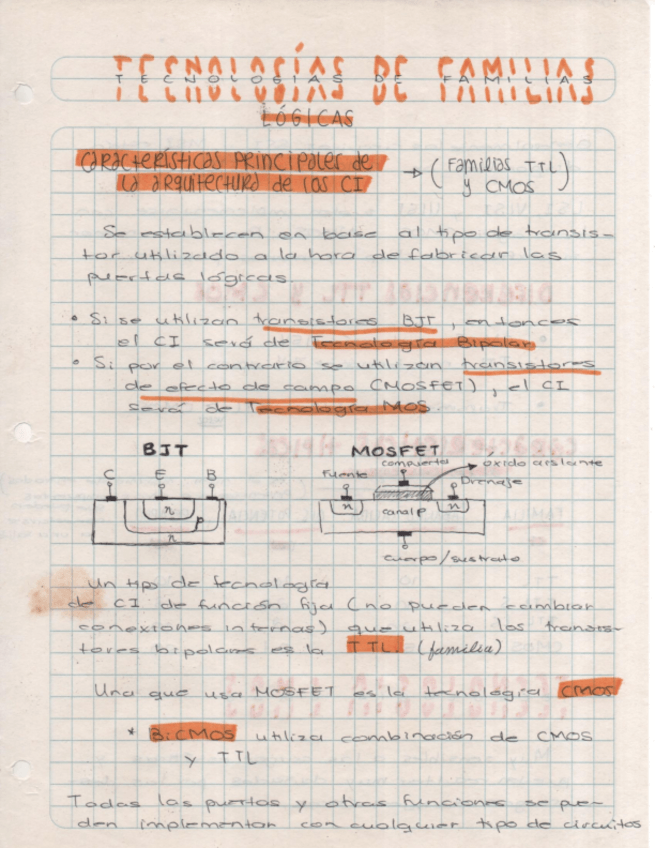 TECNOLOGÍAS DE FAMILIAS
TECNOLOGIAS DE FAMILIAS
LÓGICAS
Características principales de
la arquitectura de los CI
→ (Familias TTL
y CMOS)
Se establecen en base al tipo de transis-
tor utilizado a la hora de fabricar las
puertas lógicas.
• Si se utilizan transistores BJT, entonces
el CI será de Tecnología Bipolar
• Si por el contrario se utilizan transistores
de efecto de campo (MOSFET), el CI
será de Tecnología MOS.
BJT
C E B
n
P
n
MOSFET
compuerta
óxido aislante
Fuente
Drenaje
n canal P n
cuerpo/sustrato
Un tipo de tecnología
de CI de función fija (no pueden cambiar
conexiones internas) que utiliza los transis-
tores bipolares es la TTL. (familia)
Una que usa MOSFET es la tecnología CMOS
* BiCMOS utiliza combinación de CMOS
y TTL
Todas las puertas y otras funciones se pue-
den implementar con cualquier tipo de circuitos